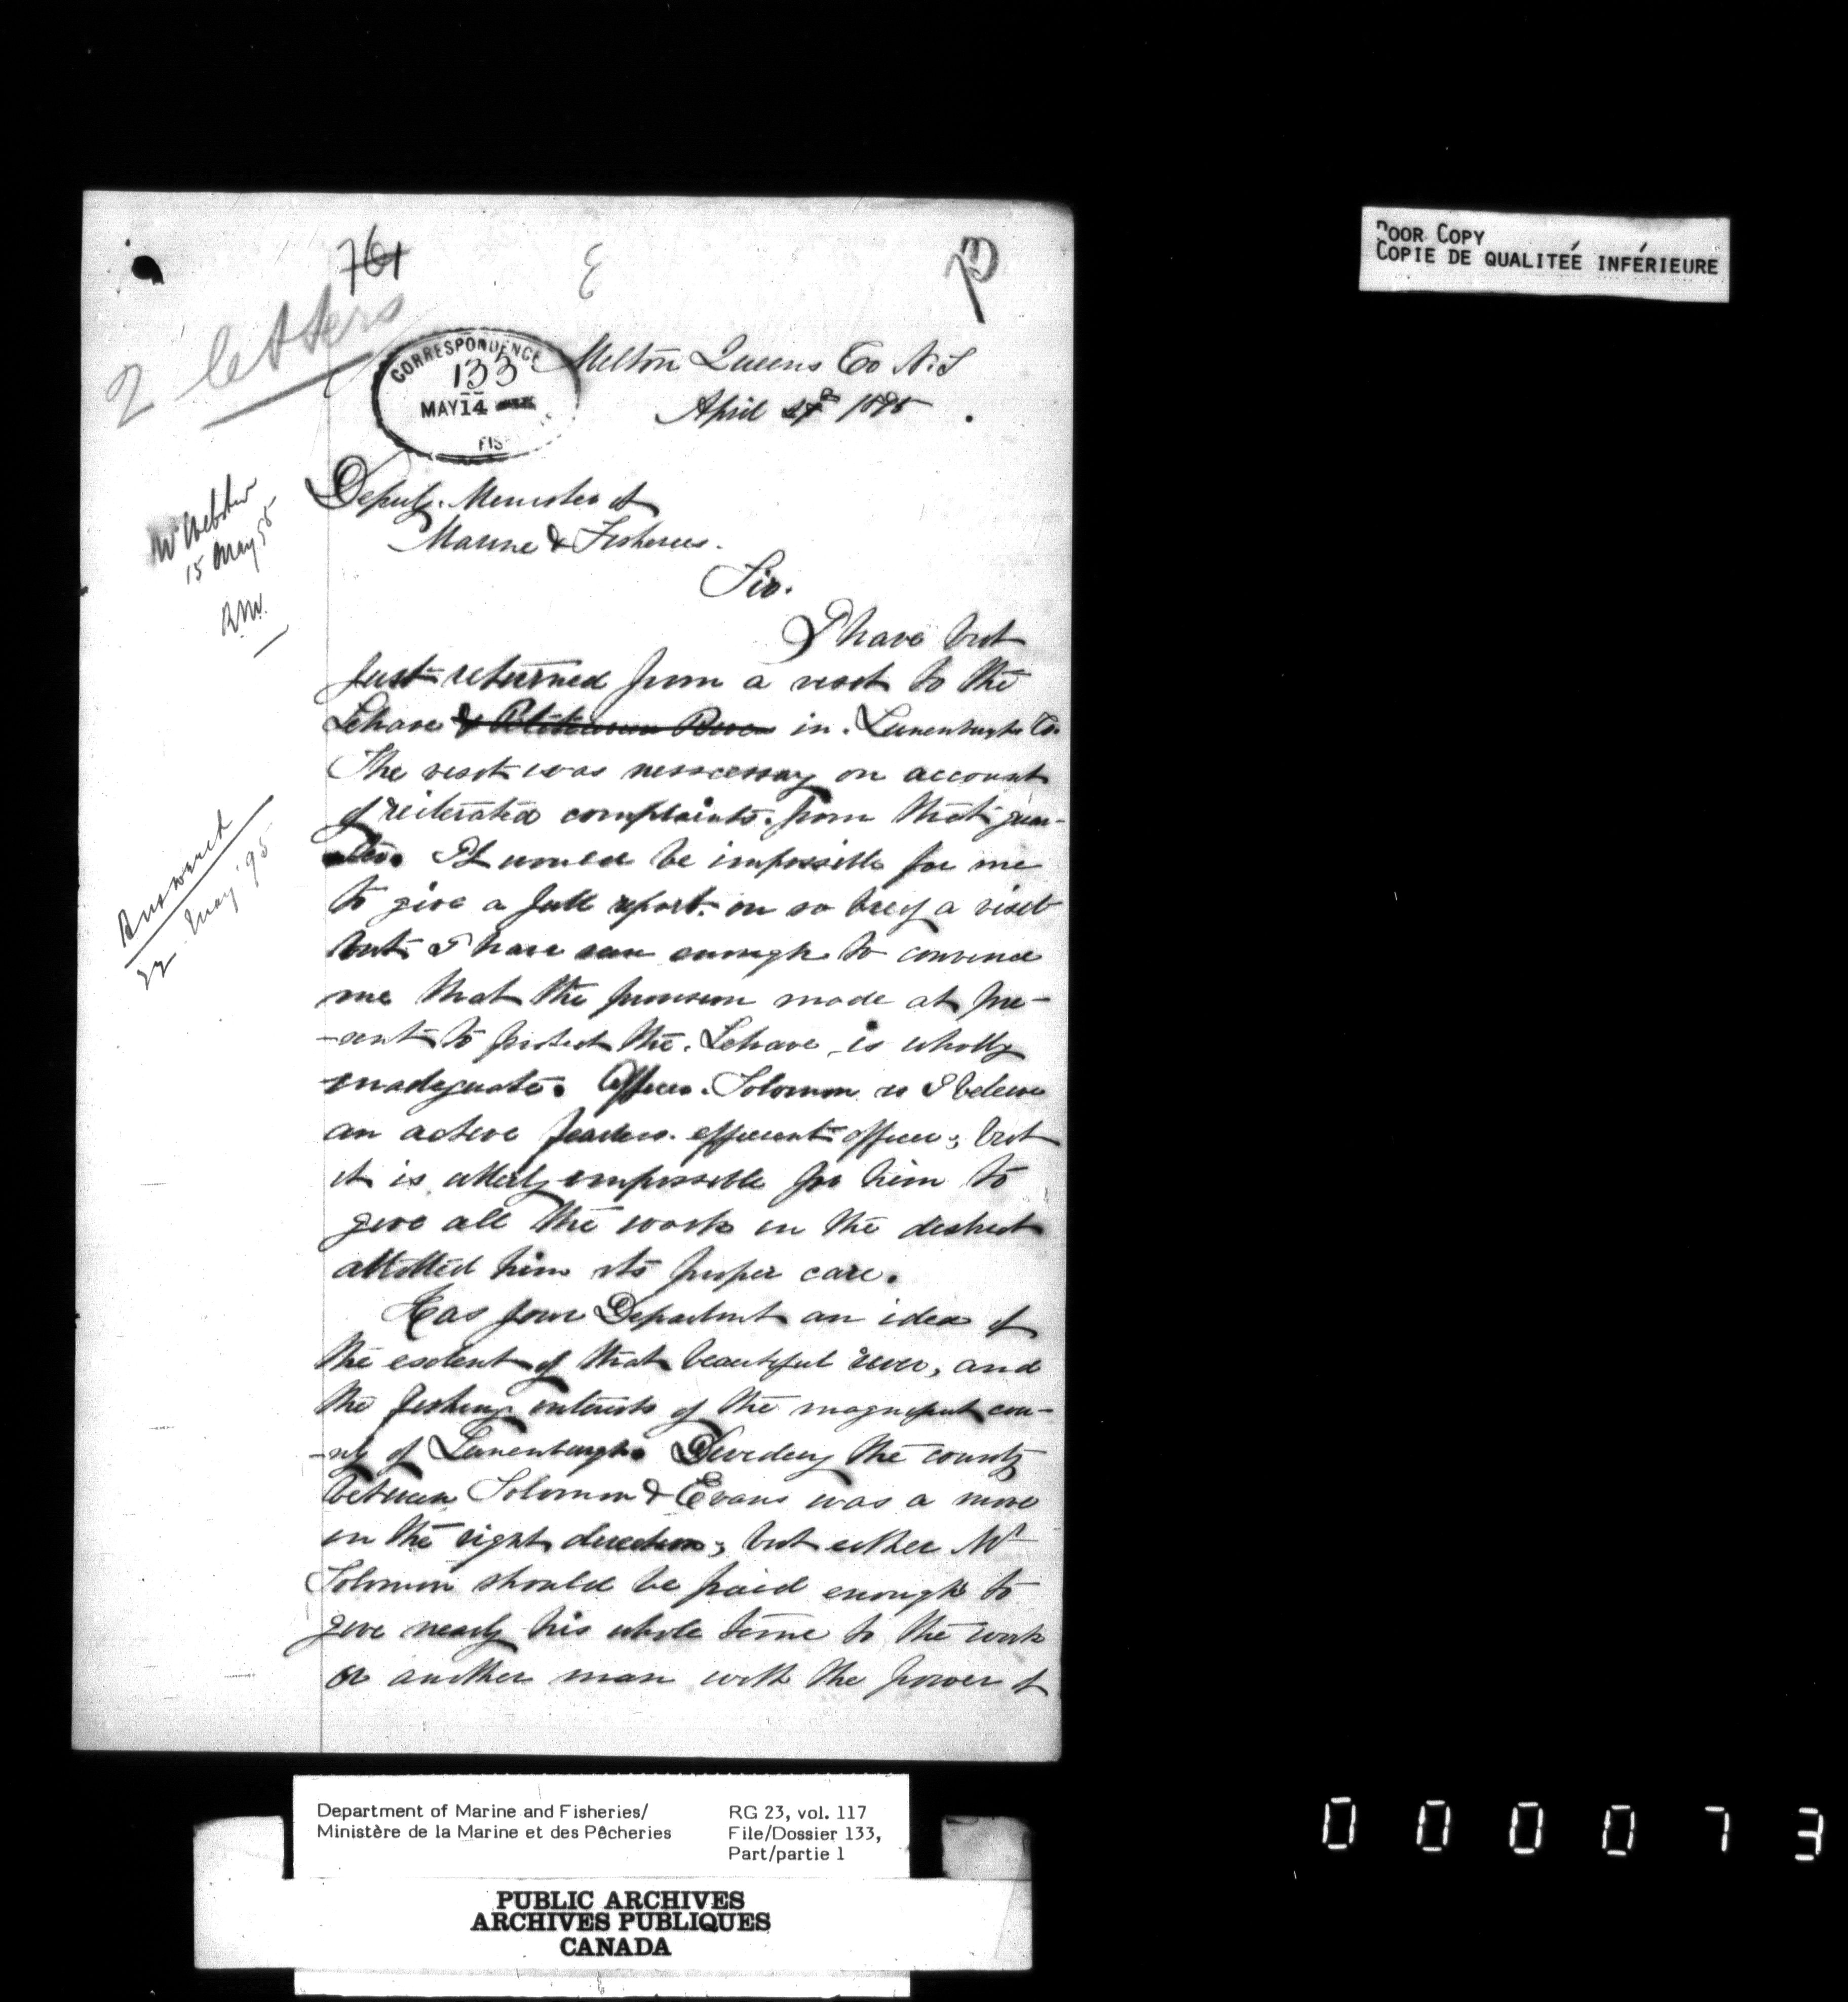 761
E
73
2 letters
CORRESPONDENCE
133
MAY 14
FIS
Milton Queens Co N.S
April 27th 1895.
Deputy Minister of
Marine & Fisheries.
Sir.
Mr Webster
15 May 95
R.N.V.
I have but
just returned from a visit to the
Lehave & in Lunenburgh Co.
The visit was nesscessary on account
of reiterated complaints from that quar-
ter. It would be impossible for me
to give a full report on so brief a visit
but I have seen enough to convince
me that the provision made at pre-
-sent to protect the Lehave is wholly
inadequate. Officer Solomon is I believe
an active fearless efficient officer; but
it is utterly impossible for him to
give all the work in the district
allotted him its proper care.
Answered
22 May '95
Has your Department an idea of
the extent of that beautiful river, and
the fishing interests of the magnificent cou-
-nty of Lunenburgh. Dividing the county
between Solomon & Evans was a move
in the right direction; but either Mr
Solomon should be paid enough to
give nearly his whole time to the work
or another man with the power of
POOR COPY
COPIE DE QUALITÉE INFÉRIEURE
Department of Marine and Fisheries/
Ministère de la Marine et des Pêcheries
RG 23, vol. 117
File/Dossier 133,
Part/partie 1
PUBLIC ARCHIVES
ARCHIVES PUBLIQUES
CANADA
000073